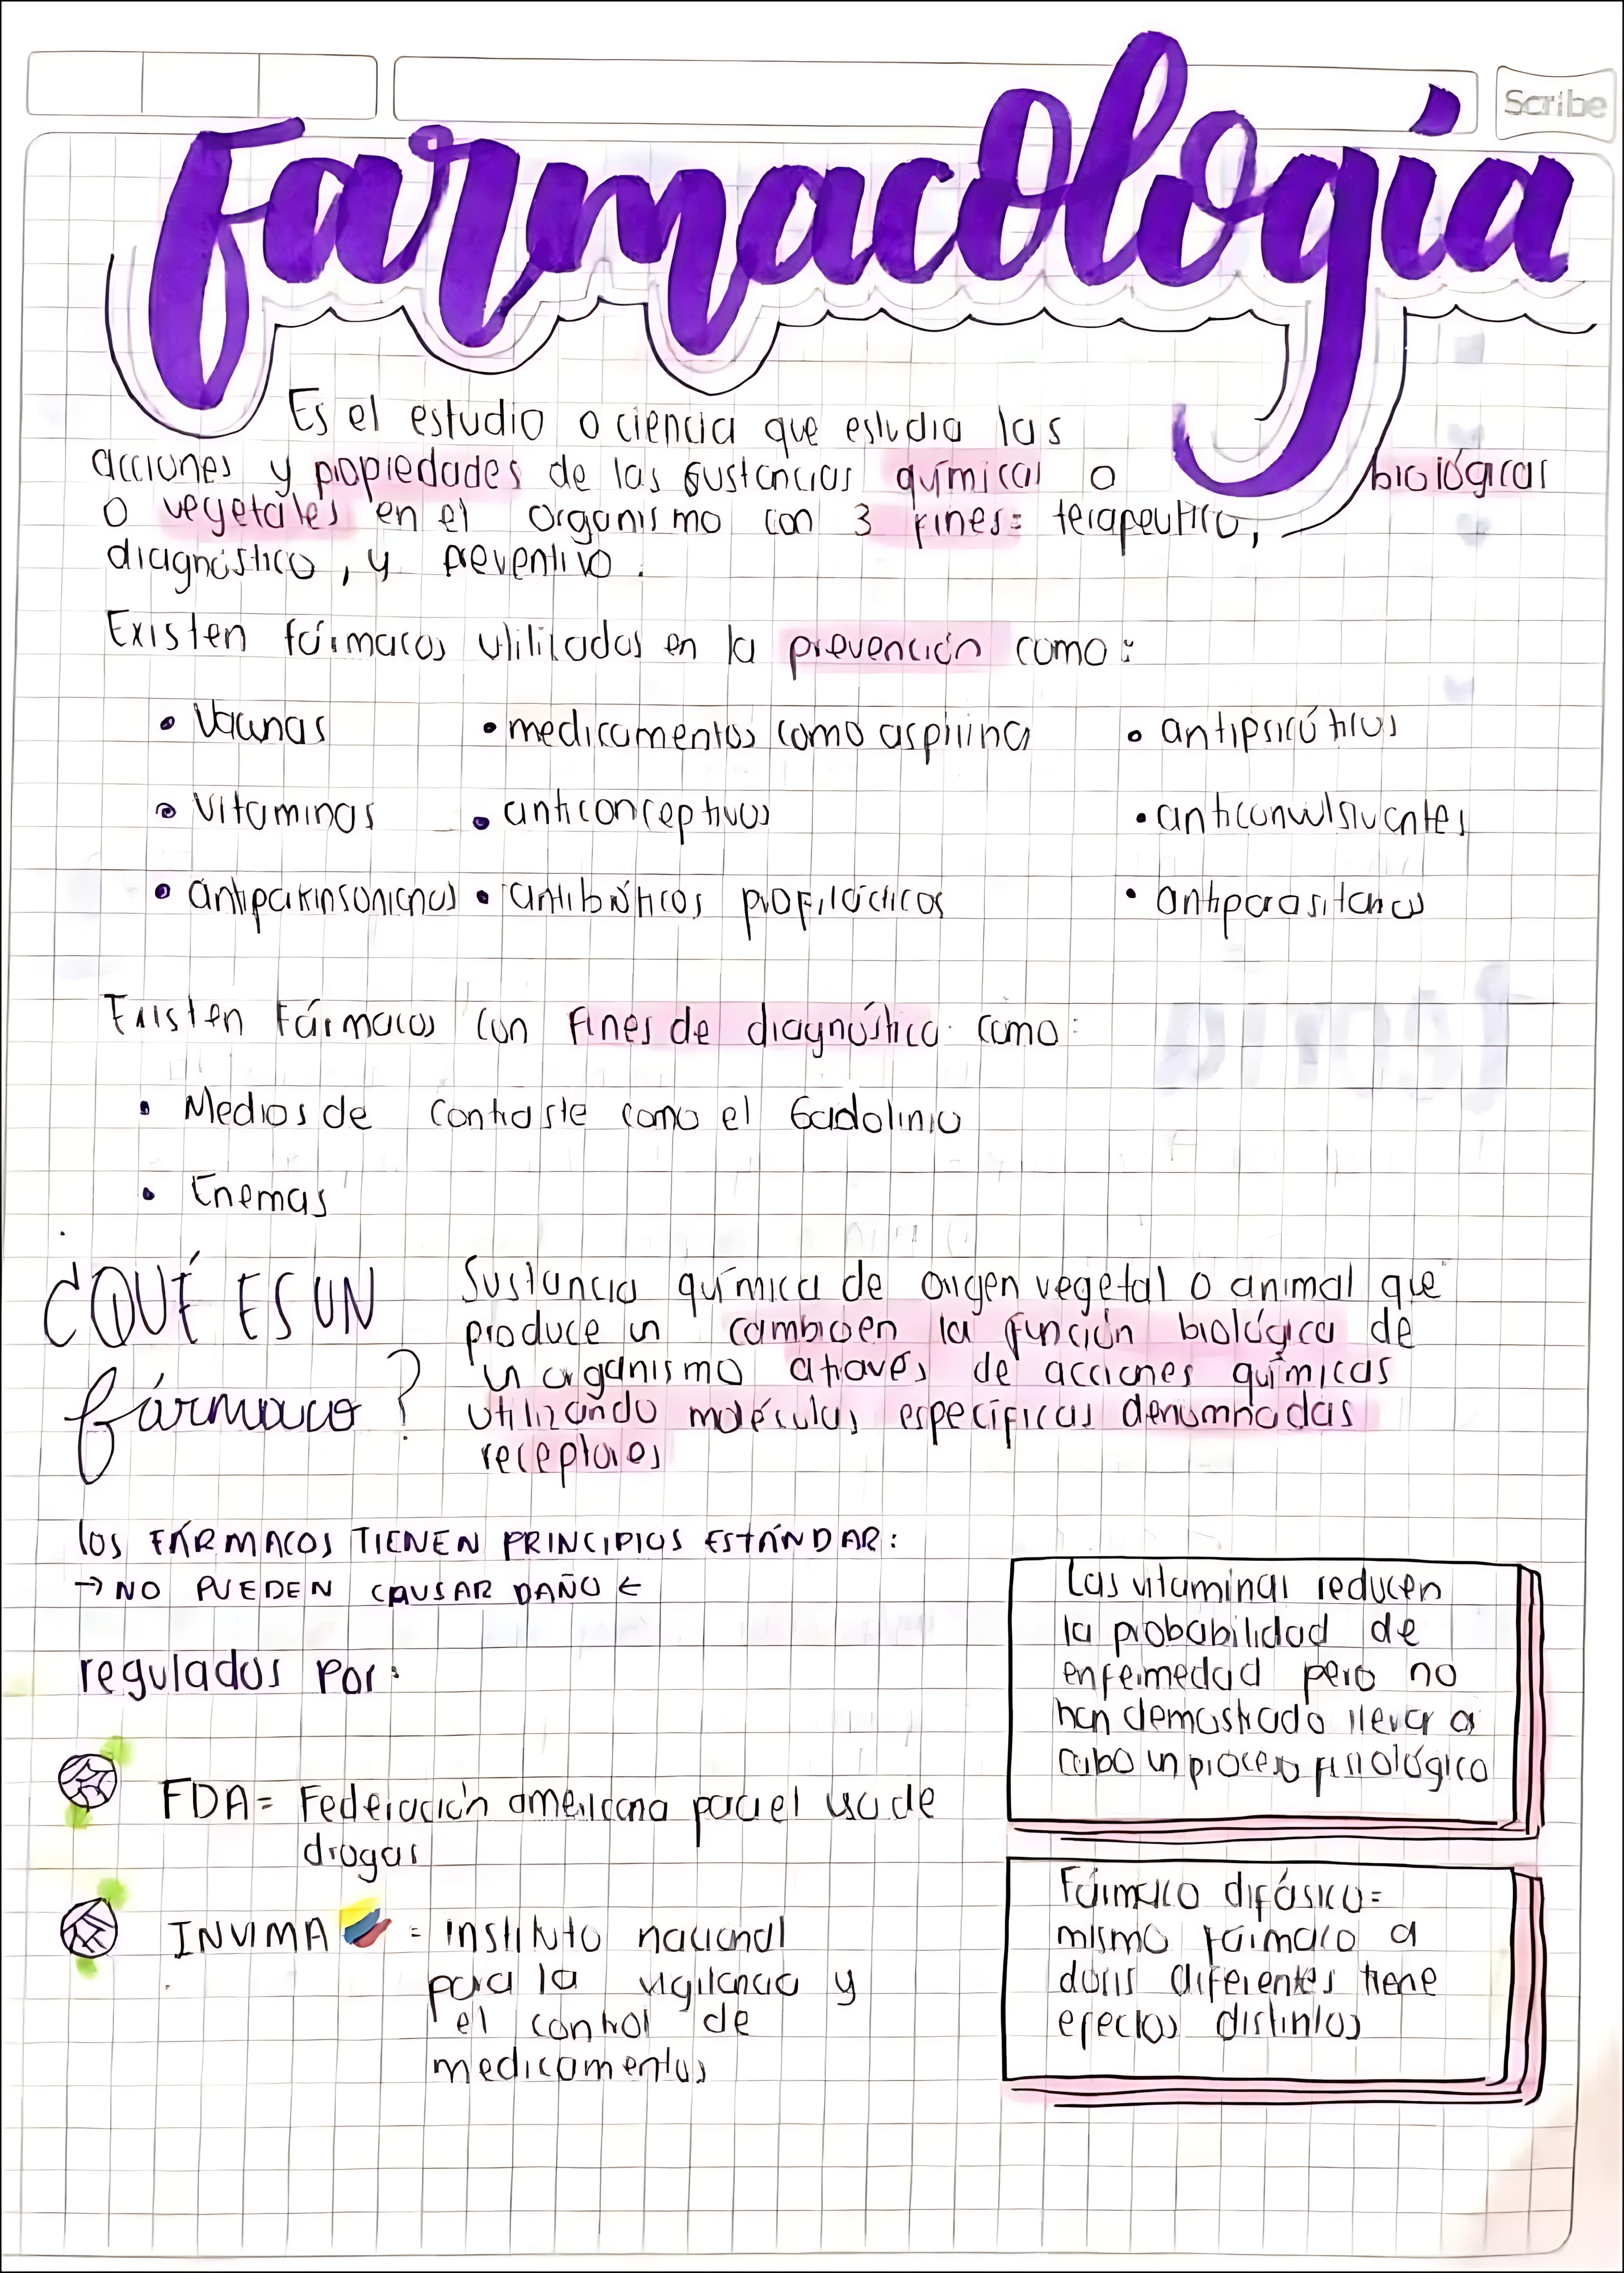 Scribe
Farmacología
Es el estudio o ciencia que estudia las
acciones y propiedades de las sustancias químicas o biológicas
o vegetales en el organismo con 3 fines: terapeutico,
diagnóstico, y preventivo.
Existen fármacos utilizados en la prevención como:
• Vacunas • medicamentos como aspirina • antipsicóticos
• Vitaminas • anticonceptivos • anticonvulsivantes
• antiparkinsonianos • antibióticos profilácticos • antiparasitarios
Existen Fármacos con fines de diagnóstico como:
• Medios de contraste como el Gadolinio
• Enemas
¿QUÉ ES UN
fármaco?
Sustancia química de origen vegetal o animal que
produce un cambio en la función biológica de
un organismo através de acciones químicas
utilizando moléculas específicas denominadas
receptores
los FÁRMACOS TIENEN PRINCIPIOS ESTÁNDAR:
→ NO PUEDEN CAUSAR DAÑO ←
regulados por:
FDA = Federación americana para el uso de
drogas
INVIMA = instituto nacional
para la vigilancia y
el control de
medicamentos
Las vitaminas reducen
la probabilidad de
enfermedad pero no
han demostrado llevar a
cabo un proceso fisiológico
Fármaco difásico=
mismo fármaco a
dosis diferentes tiene
efectos distintos